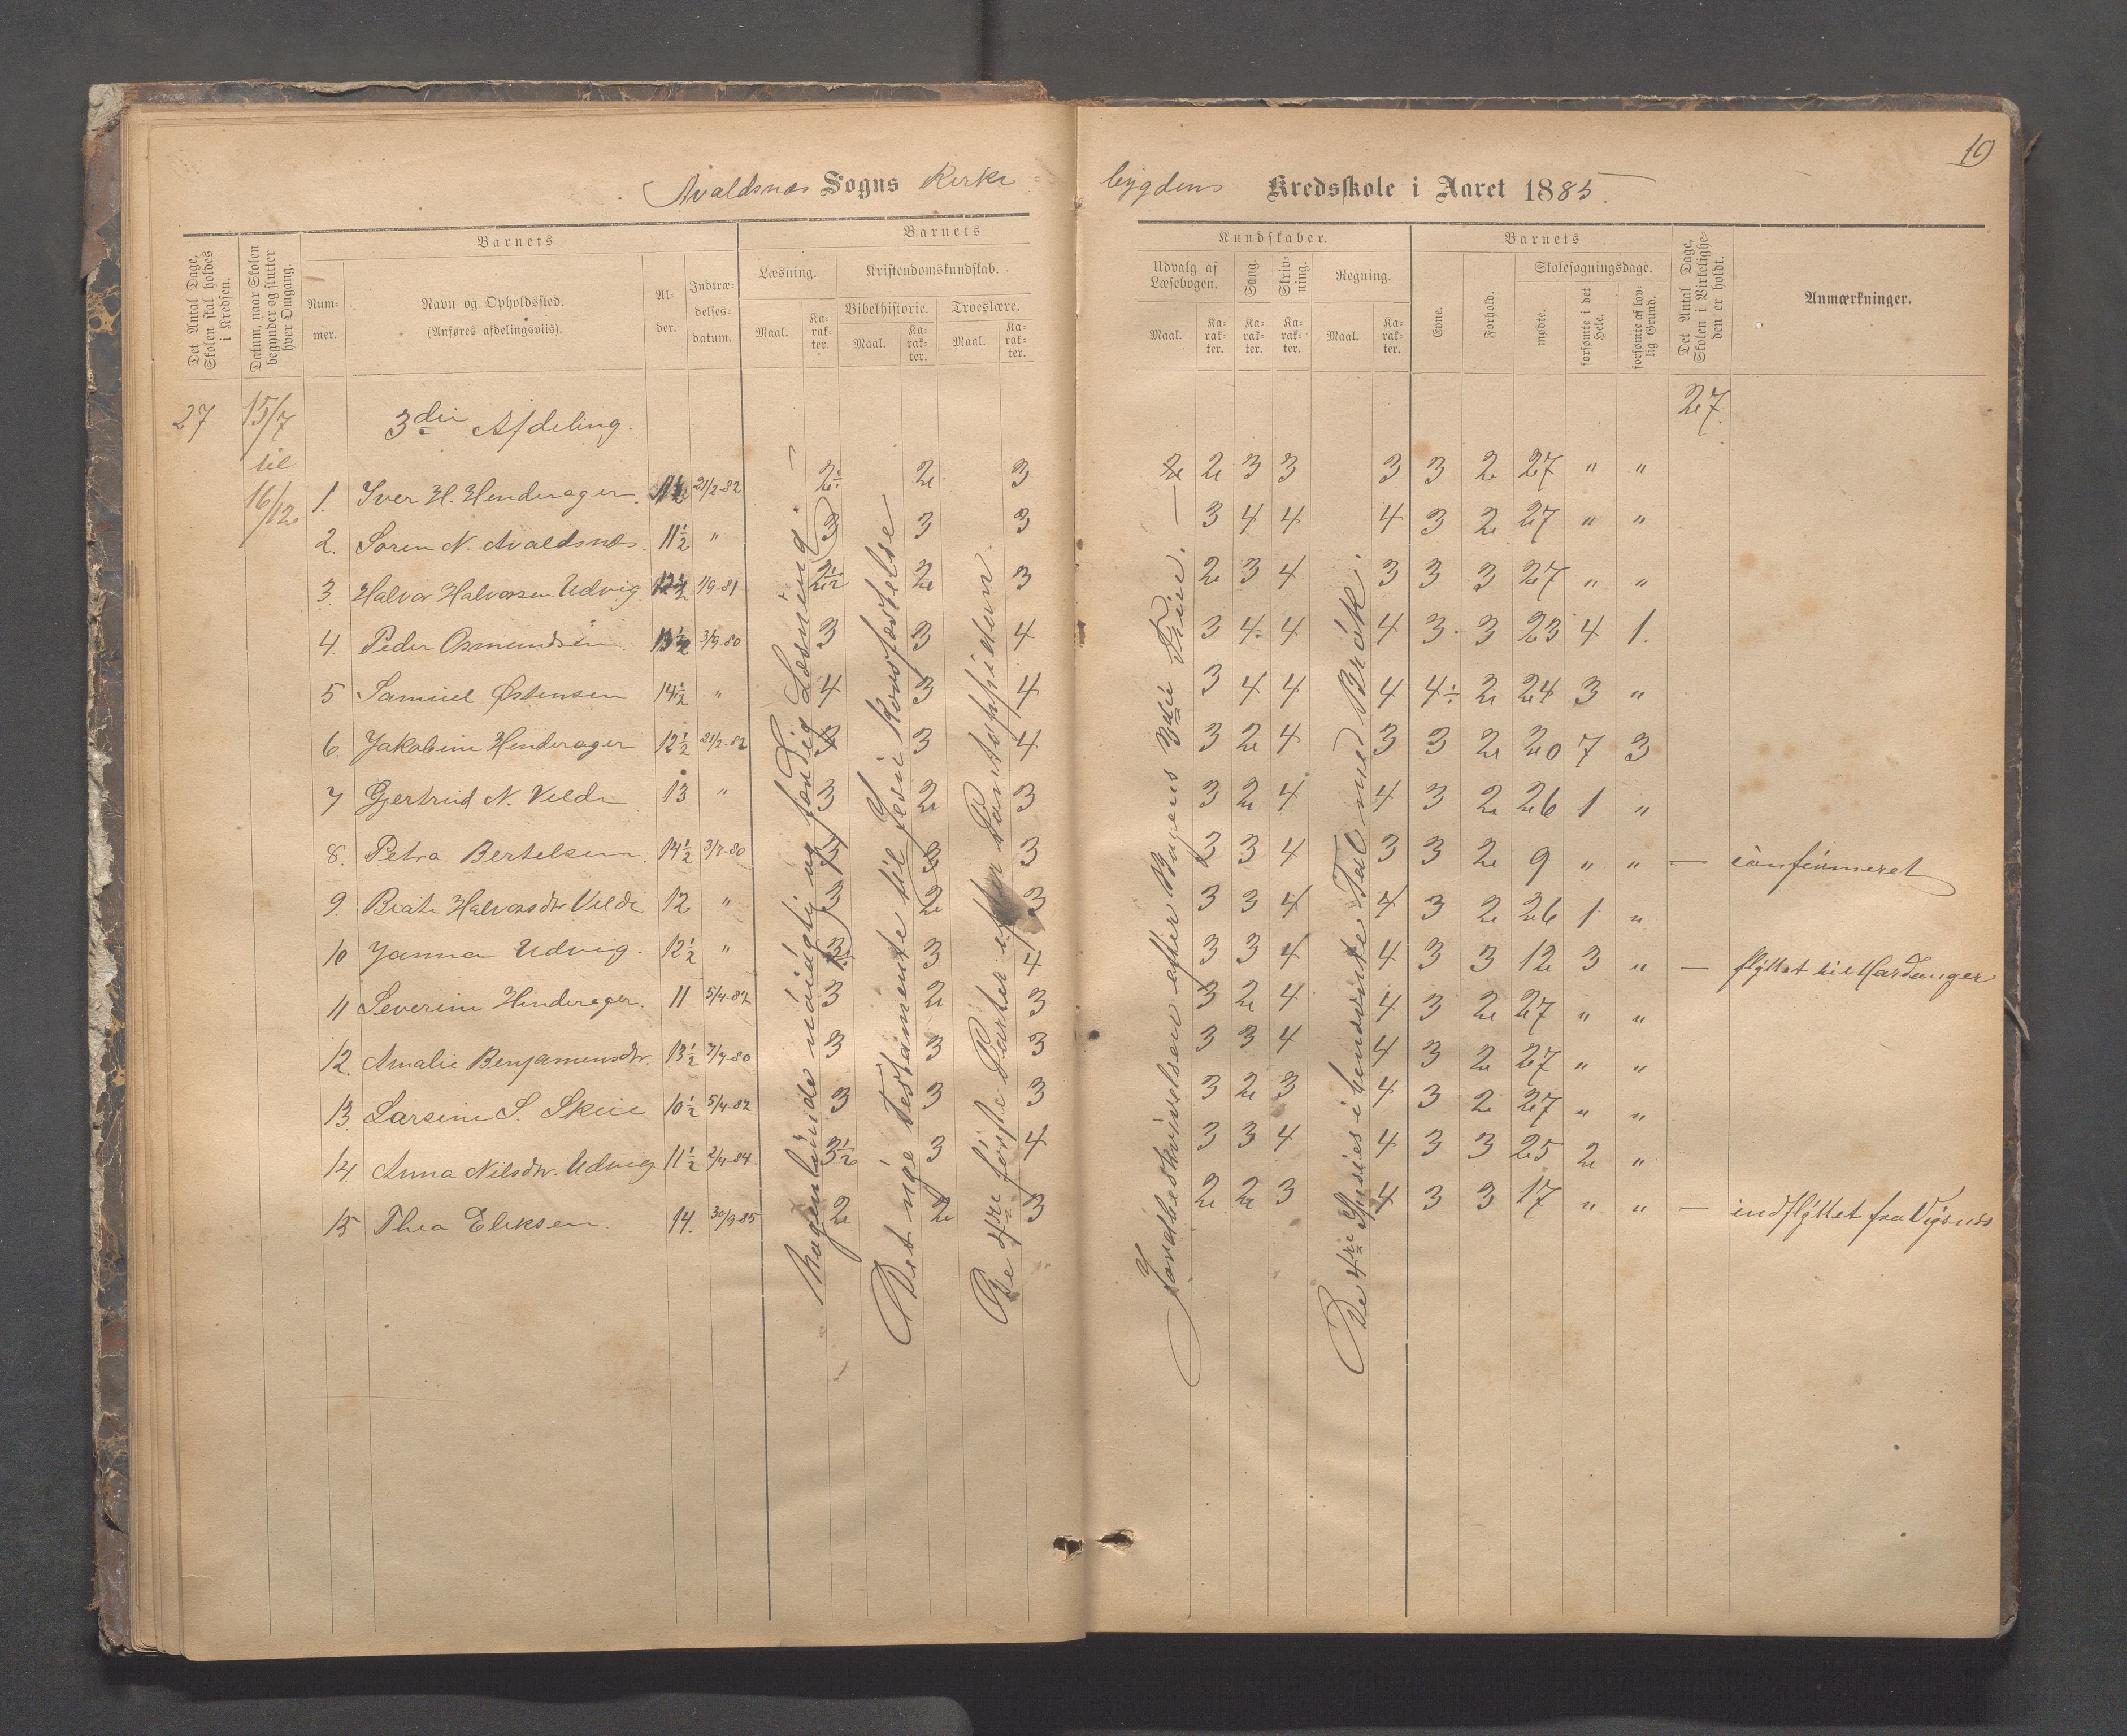 10
Avaldsnæs Sogns Kirke=
bygdens Kredsskole i Aaret 1885.
Det Antal Dage, Skolen skal holdes i Kredsen.
Datum, naar Skolen begynder og slutter hver Omgang.
Barnets
Nummer.
Navn og Opholdssted.
(Anføres afdelingsviis).
Alder.
Indtrædelsesdatum.
Barnets
Læsning.
Maal.
Karakter.
Kristendomskundskab.
Bibelhistorie.
Maal.
Karakter.
Troeslære.
Maal.
Karakter.
Kundskaber.
Udvalg af Læsebogen.
Maal.
Karakter.
Sang.
Karakter.
Skrivning.
Karakter.
Regning.
Maal.
Karakter.
Barnets
Evne.
Forhold.
Skolesøgningsdage.
mødte.
forsømte i det Hele.
forsømte af lovlig Grund.
Det Antal Dage, Skolen i Virkeligheden er holdt.
Anmærkninger.
27 15/7 3die Afdeling. 27.
til
16/12
1. Iver H. Hinderager 11½ 21/2-82 2÷ 2 3 2 2 3 3 3 3 2 27 " "
2. Søren N. Avaldsnæs. 11½ " 3 3 3 3 4 4 4 3 2 27 " "
3. Halvor Halvorsen Udvig 12½ 1/9-81 2½ 2 3 2 3 4 3 3 3 27 " "
4. Peder Osmundsen 13½ 3/9-80 3 3 4 3 4 4 4 3 3 23 4 1.
5 Samuel Østensen 14½ " 4 3 4 3 4 4 4 4÷ 2 24 3 "
6. Jakobine Hinderager 12½ 21/2-82 3 4 3 2 4 3 3 2 20 7 3
7 Gjertrud N. Velde 13 " 3 2 3 3 2 4 4 3 2 26 1 "
8. Petra Bertelsen 14½ 3/7-80 3 3 3 3 3 4 3 3 2 9 " " — confirmeret
9. Beate Halvorsdtr Velde 12 " 3 2 3 3 3 4 4 3 2 26 1 "
10 Janna Udvig. 12½ " 3 4 3 3 4 4 3 3 12 3 " — flyttet til Hardanger
11 Severine Hinderager. 11 5/4-82 3 2 3 3 2 4 4 3 2 27 " "
12. Amalie Benjaminsdtr. 13½ 7/7-80 3 3 3 3 3 4 4 3 2 27 " "
13. Larsine S. Skeie 10½ 5/4-82 3 3 3 3 2 3 4 3 2 27 " "
14 Anna Nilsdtr. Udvig 11½ 2/4-84. 3½ 3 4 3 3 4 4 3 3 25 2 "
15 Thea Eliksen. 14. 30/9-85 2 2 3 2 2 3 4 3 3 17 " " — indflyttet fra Vigsnæs
Nogenlunde nøiagtig og færdig Læsning. —
Det nye Testamente til Jesu Korsfæstelse
De 4re første Parter efter Pontoppidan.
Jordbeskrivelsen efter Bogens 3die Trin. —
De 4re Species i benævnte Tal med Brøk.